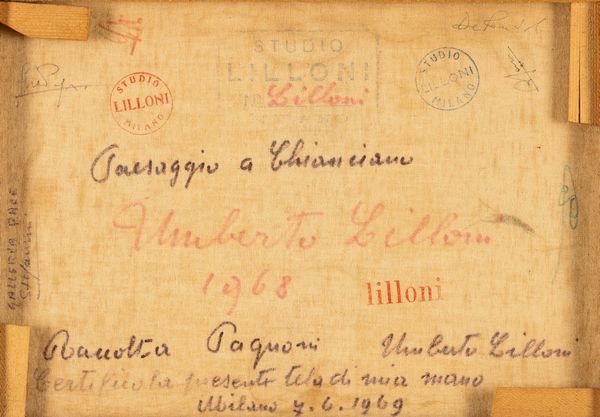 STUDIO
LILLONI
Lilloni
STUDIO
LILLONI
MILANO
STUDIO
LILLONI
MILANO
Paesaggio a Chianciano
Umberto Lilloni
1968
lilloni
GALLERIA PACE
Raccolta Pagnoni Umberto Lilloni
Certifico la presente tela di mia mano
Milano 7.6.1969